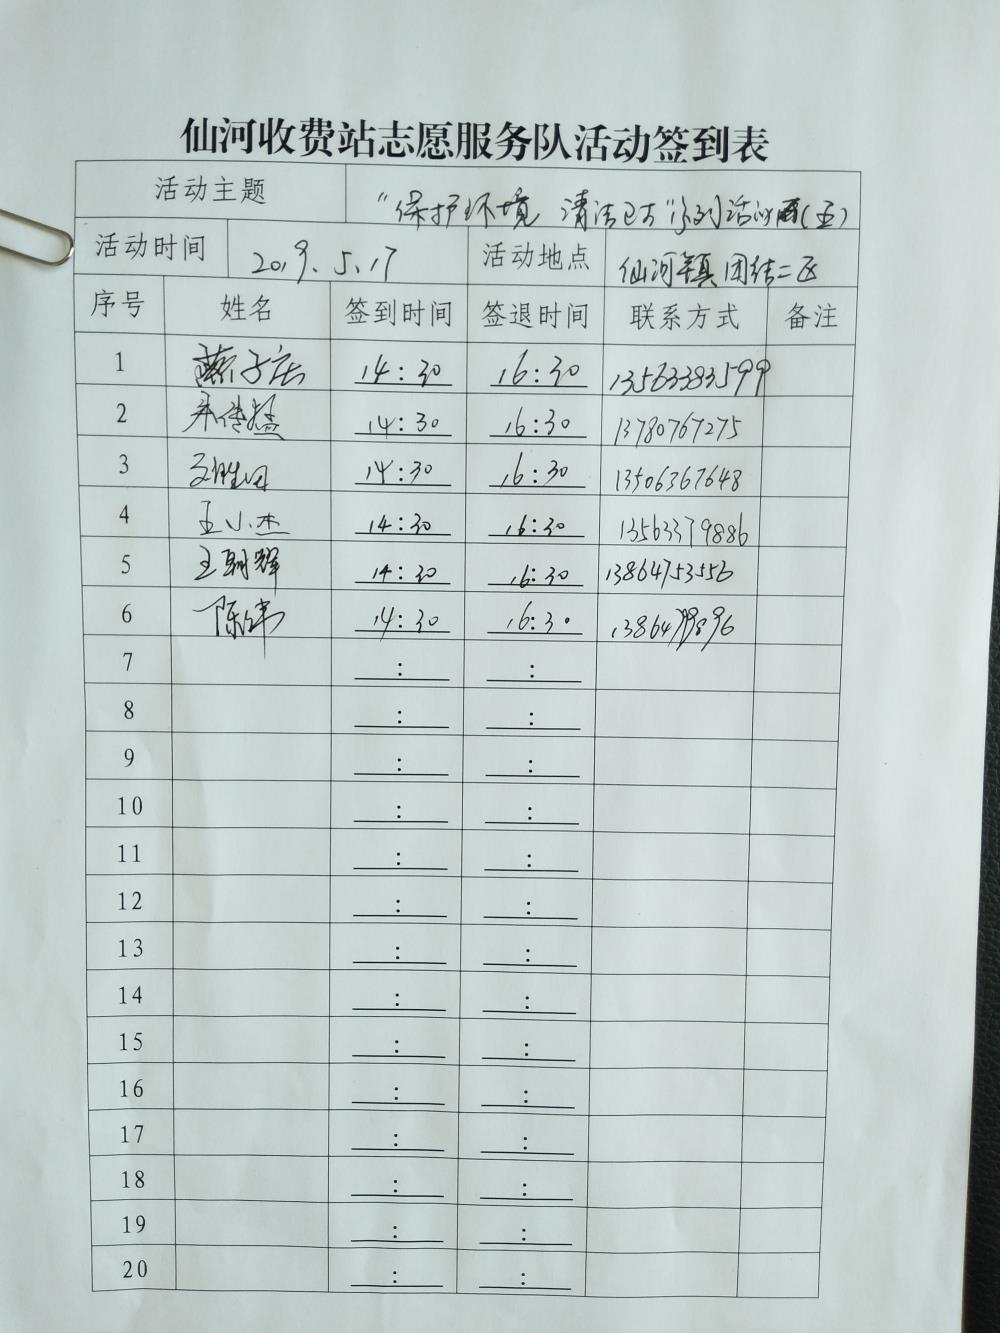 仙河收费站志愿服务队活动签到表
活动主题 "保护环境 清洁"系列活动(五)
活动时间 2019.5.17 活动地点 仙河镇团结二区
序号 姓名 签到时间 签退时间 联系方式 备注
1 14:30 16:30 13563383599
2 14:30 16:30 13780767275
3 14:30 16:30 13506367648
4 王小杰 14:30 16:30 13563379886
5 王朝辉 14:30 16:30 13864753556
6 陈炜 14:30 16:30
7 : :
8 : :
9 : :
10 : :
11 : :
12 : :
13 : :
14 : :
15 : :
16 : :
17 : :
18 : :
19 : :
20 : :